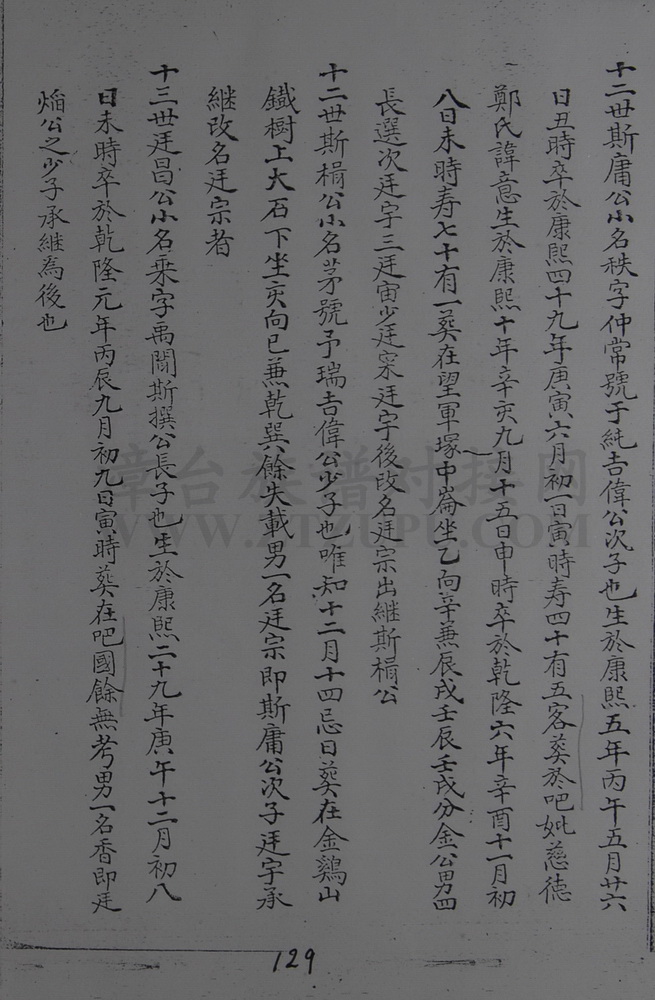 十二世斯庸公小名秩字仲常號于純吉偉公次子也生於康熙五年丙午五月廿六
日丑時卒於康熙四十九年庚寅六月初一日寅時寿四十有五客葬於吧妣慈德
鄭氏諱意生於康熙十年辛亥九月十五日申時卒於乾隆六年辛酉十一月初
八日未時寿七十有一葬在望軍塚中崙坐乙向辛兼辰戌壬辰壬戌分金公男四
長選次廷宇三廷宙少廷寀廷宇後改名廷宗出継斯榾公
十二世斯榾公小名茅號予瑞吉偉公少子也唯知十二月十四忌日葬在金鷄山
鐵樹上大石下坐亥向巳兼乾巽餘失載男一名廷宗即斯庸公次子廷宇承
継改名廷宗者
十三世廷昌公小名乗字禹聞斯撰公長子也生於康熙二十九年庚午十二月初八
日未時卒於乾隆元年丙辰九月初九日寅時葬在吧國餘無考男一名香即廷
焔公之少子承継為後也
章台族譜对接网
WWW.ZTZUPU.COM
129